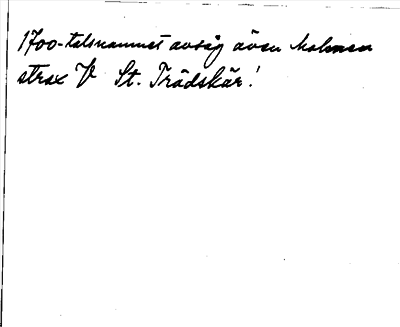 1700-talsnamnet avsåg även holmen
strax V St. Trädskär!